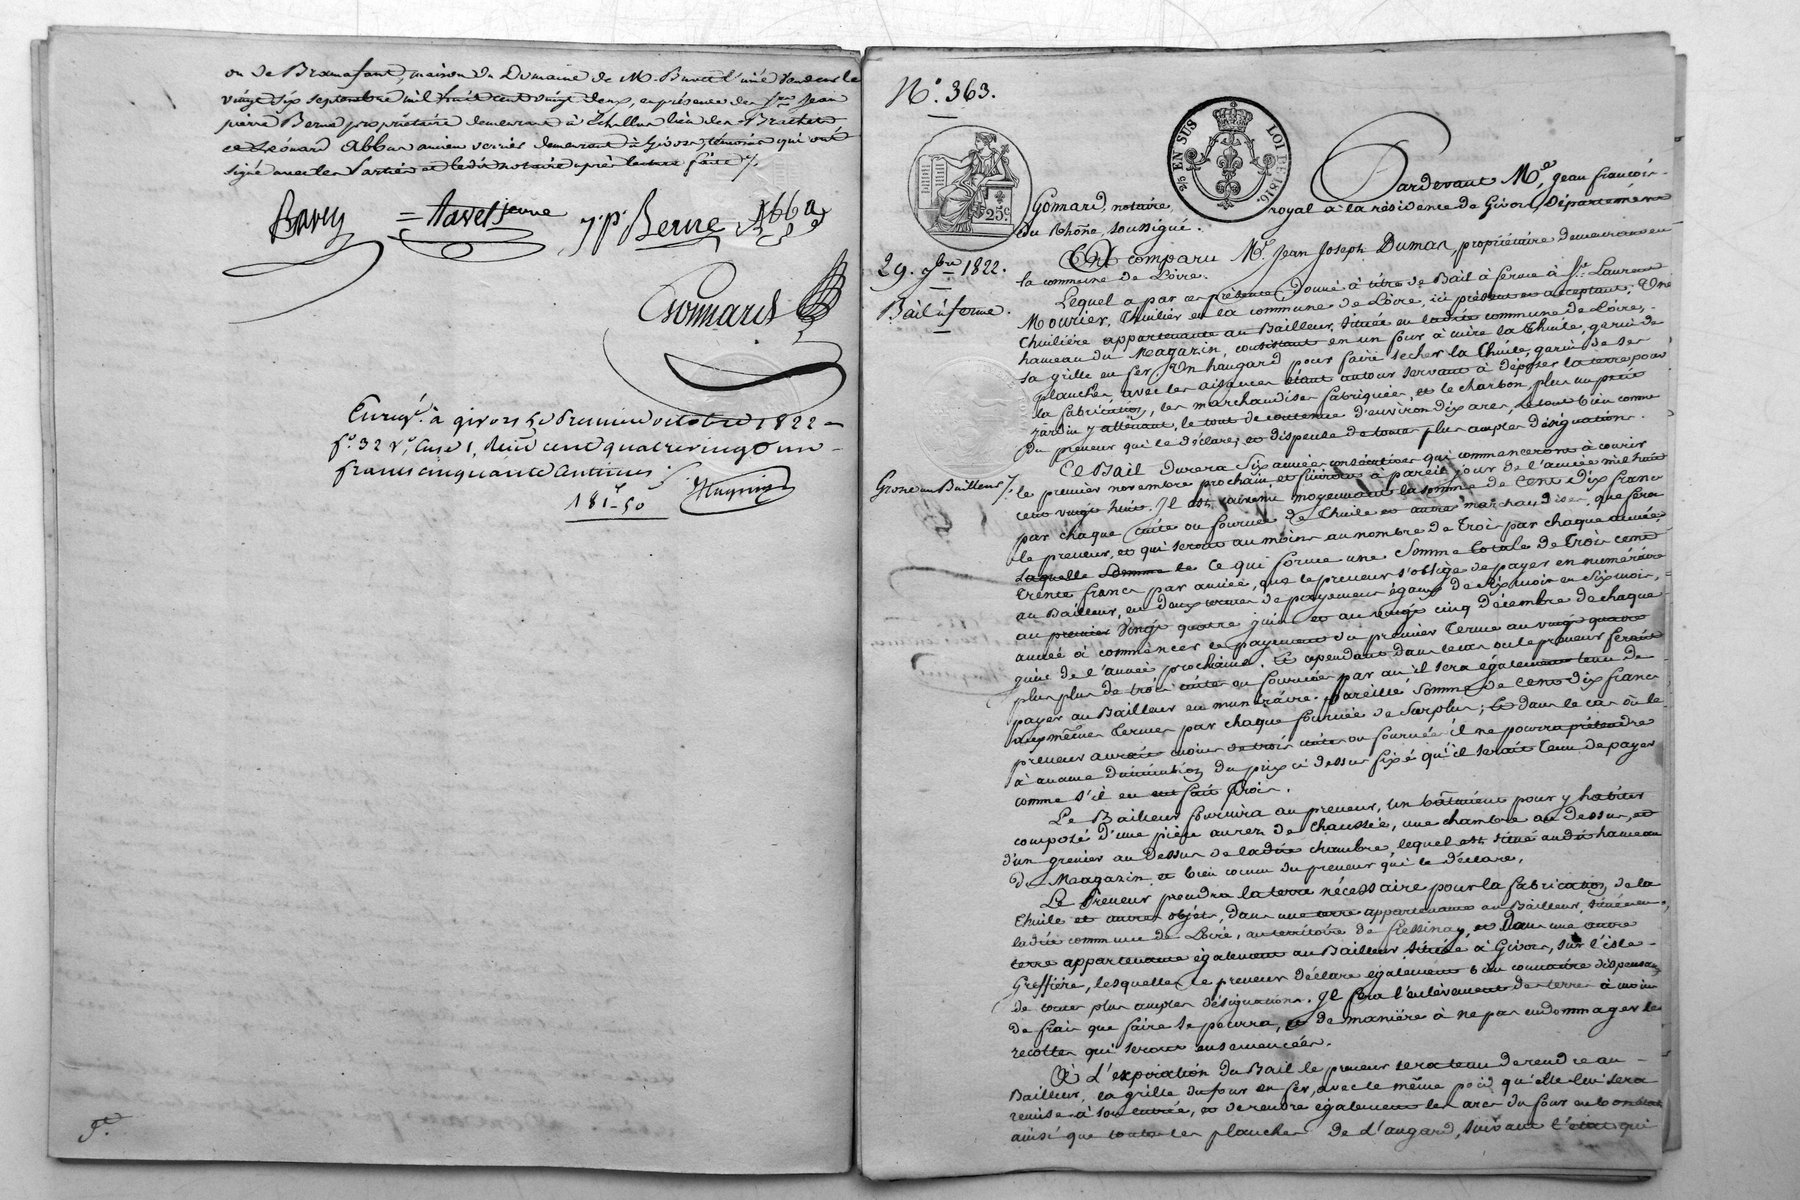 ou de Bramafant, maison du Domaine de M. Buvet l'ainé vendeur le
vingt six septembre mil huit cent vingt deux, en présence des srs Jean
pierre Berne propriétaire demeurant à Echallas lieu des
et Léonard Abbas ancien verrier demeurant à Givors, témoins qui ont
signé avec les parties et le dit notaire après lecture faite ./.
= Favet jeune
J. P. Berne Abbas
Gonnard
Enregé. à Givors le premier octobre 1822 -
fo. 32 Vo. Case 1, Reçu cent quatre vingt un -
francs cinquante centimes.
181f - 50
No. 363.
25c.
25 EN SUS LOI DE 1816.
Pardevant Me. Jean François -
Gonnard, notaire royal à la résidence de Givors, Département
du Rhône, soussigné.
29. 7bre 1822.
Bail à ferme.
Est comparu Mr. Jean Joseph Dumas, propriétaire demeurant en
la commune de Loire.
Lequel a par ces présentes, donné à titre de Bail à ferme à sr. Laurent
Mourier, Thuilier en la commune de Loire, ici présent et acceptant, Une
Thuilière appartenante au Bailleur, située en ladite commune de Loire,
hameau du Magazin, consistant en un four à cuire la Thuile, garni de
sa grille en fer, Un hangard pour faire secher la Thuile, garni de ses
planches, avec les aisances étant autour servant à déposer la terre, pour
la fabrication, les marchandises fabriquées, et le charbon, plus un petit
jardin y attenant, le tout de contenue d'environ dix ares, le tout bien connu
du preneur qui le déclare, et dispense de toutes plus amples désignations.
Grosse au Bailleur ./.
Ce Bail durera Six années consécutives qui commenceront à courir
le premier novembre prochain et finiront à pareil jour de l'année mil huit
cent vingt huit. Il est convenu moyennant la somme de Cent Dix francs
par chaque cuite ou fournée de Thuile et autres marchandises que fera
le preneur, et qui seront au moins au nombre de Trois par chaque année,
laquelle somme te Ce qui forme une Somme totale de Trois cent
Trente francs par année, que le preneur s'oblige de payer en numéraire
au Bailleur, en deux termes de payemens égaux de six mois en six mois,
au premier Vingt quatre juin et au vingt cinq décembre de chaque
année à commencer le payement du premier Terme au vingt quatre
juin de l'année prochaine. Et cependant dans le cas ou le preneur feroit
plus plus de trois cuites ou fournées par an il sera également tenu de
payer au Bailleur en numéraire pareille Somme de Cent dix francs
aux mêmes Termes par chaque fournée de Surplus; Et dans le cas où le
preneur auroit moins de trois cuites ou fournées il ne pourra prétendre
à aucune diminution du prix ci dessus fixé qu'il seroit tenu de payer
comme s'il en eut fait Trois.
Le Bailleur fournira au preneur, un bâtiment pour y habiter
composé d'une pièce au rez de chaussée, une chambre au dessus, et
d'un grenier au dessus de ladite chambre, lequel est situé audit hameau
du Magazin et bien connu du preneur qui le déclare.
Le Preneur prendra la terre nécessaire pour la fabrication de la
Thuile et autres objets, dans une terre appartenante au Bailleur, située en
ladite commune de Loire, au territoire de Fressinay, et Dans une autre
terre appartenante également au Bailleur, située à Givors, sur l'isle -
Greffière, lesquelles le preneur déclare également bien connaitre dispensant
de toutes plus amples désignations. Il fera l'enlèvement des terres à moins
de frais que faire se pourra, et de manière à ne pas endommager les
recoltes qui seront ensemencées.
A l'expiration du Bail le preneur sera tenu de rendre au -
Bailleur, la grille du four en fer, avec le même poid qu'elle lui sera
remise à son entrée, et de rendre également les arcs du four en bon état
ainsi que toutes les planches de l'angard, suivant l'état qui